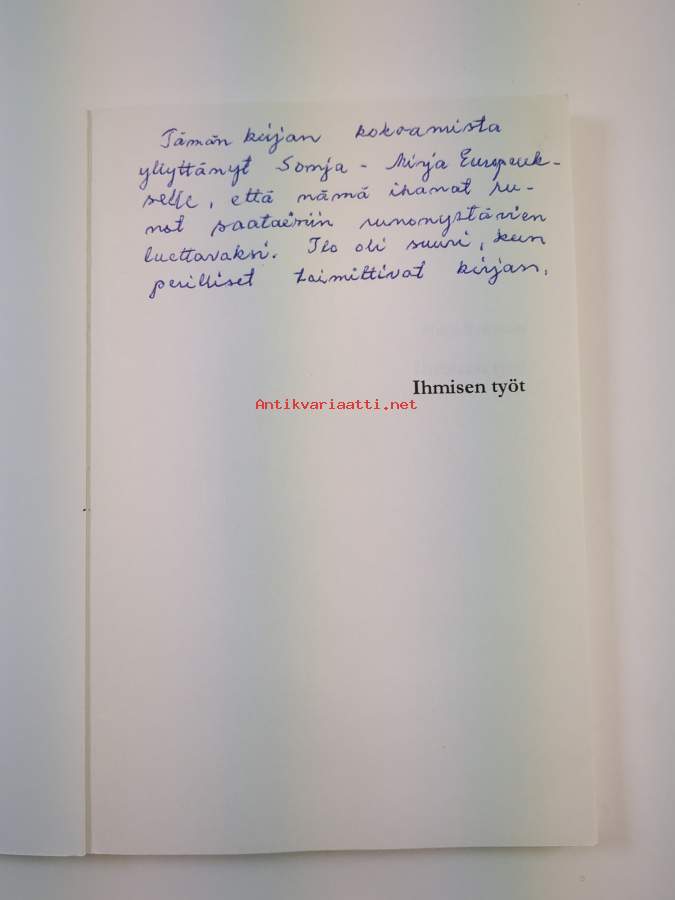 Tämän kirjan kokoamista
yllyttänyt Sonja - Mirja Europeuk-
selle, että nämä ihanat ru-
not saataisiin runonystävien
luettavaksi. Ilo oli suuri, kun
perilliset toimittivat kirjan.
Ihmisen työt
Antikvariaatti.net